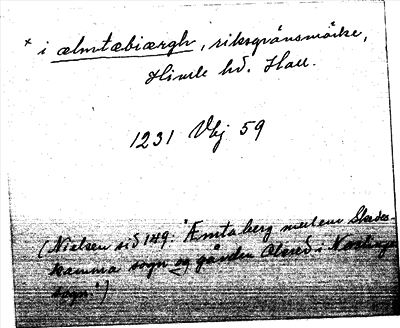 × i ælmtæbiærgh, riksgränsmärke,
Himle hd. Hall.
1231 Vbj 59
(Nielsen sid 149: "Æmtaberg mellem Skedes-
kamma sogn og gården Olsred i
sogn")